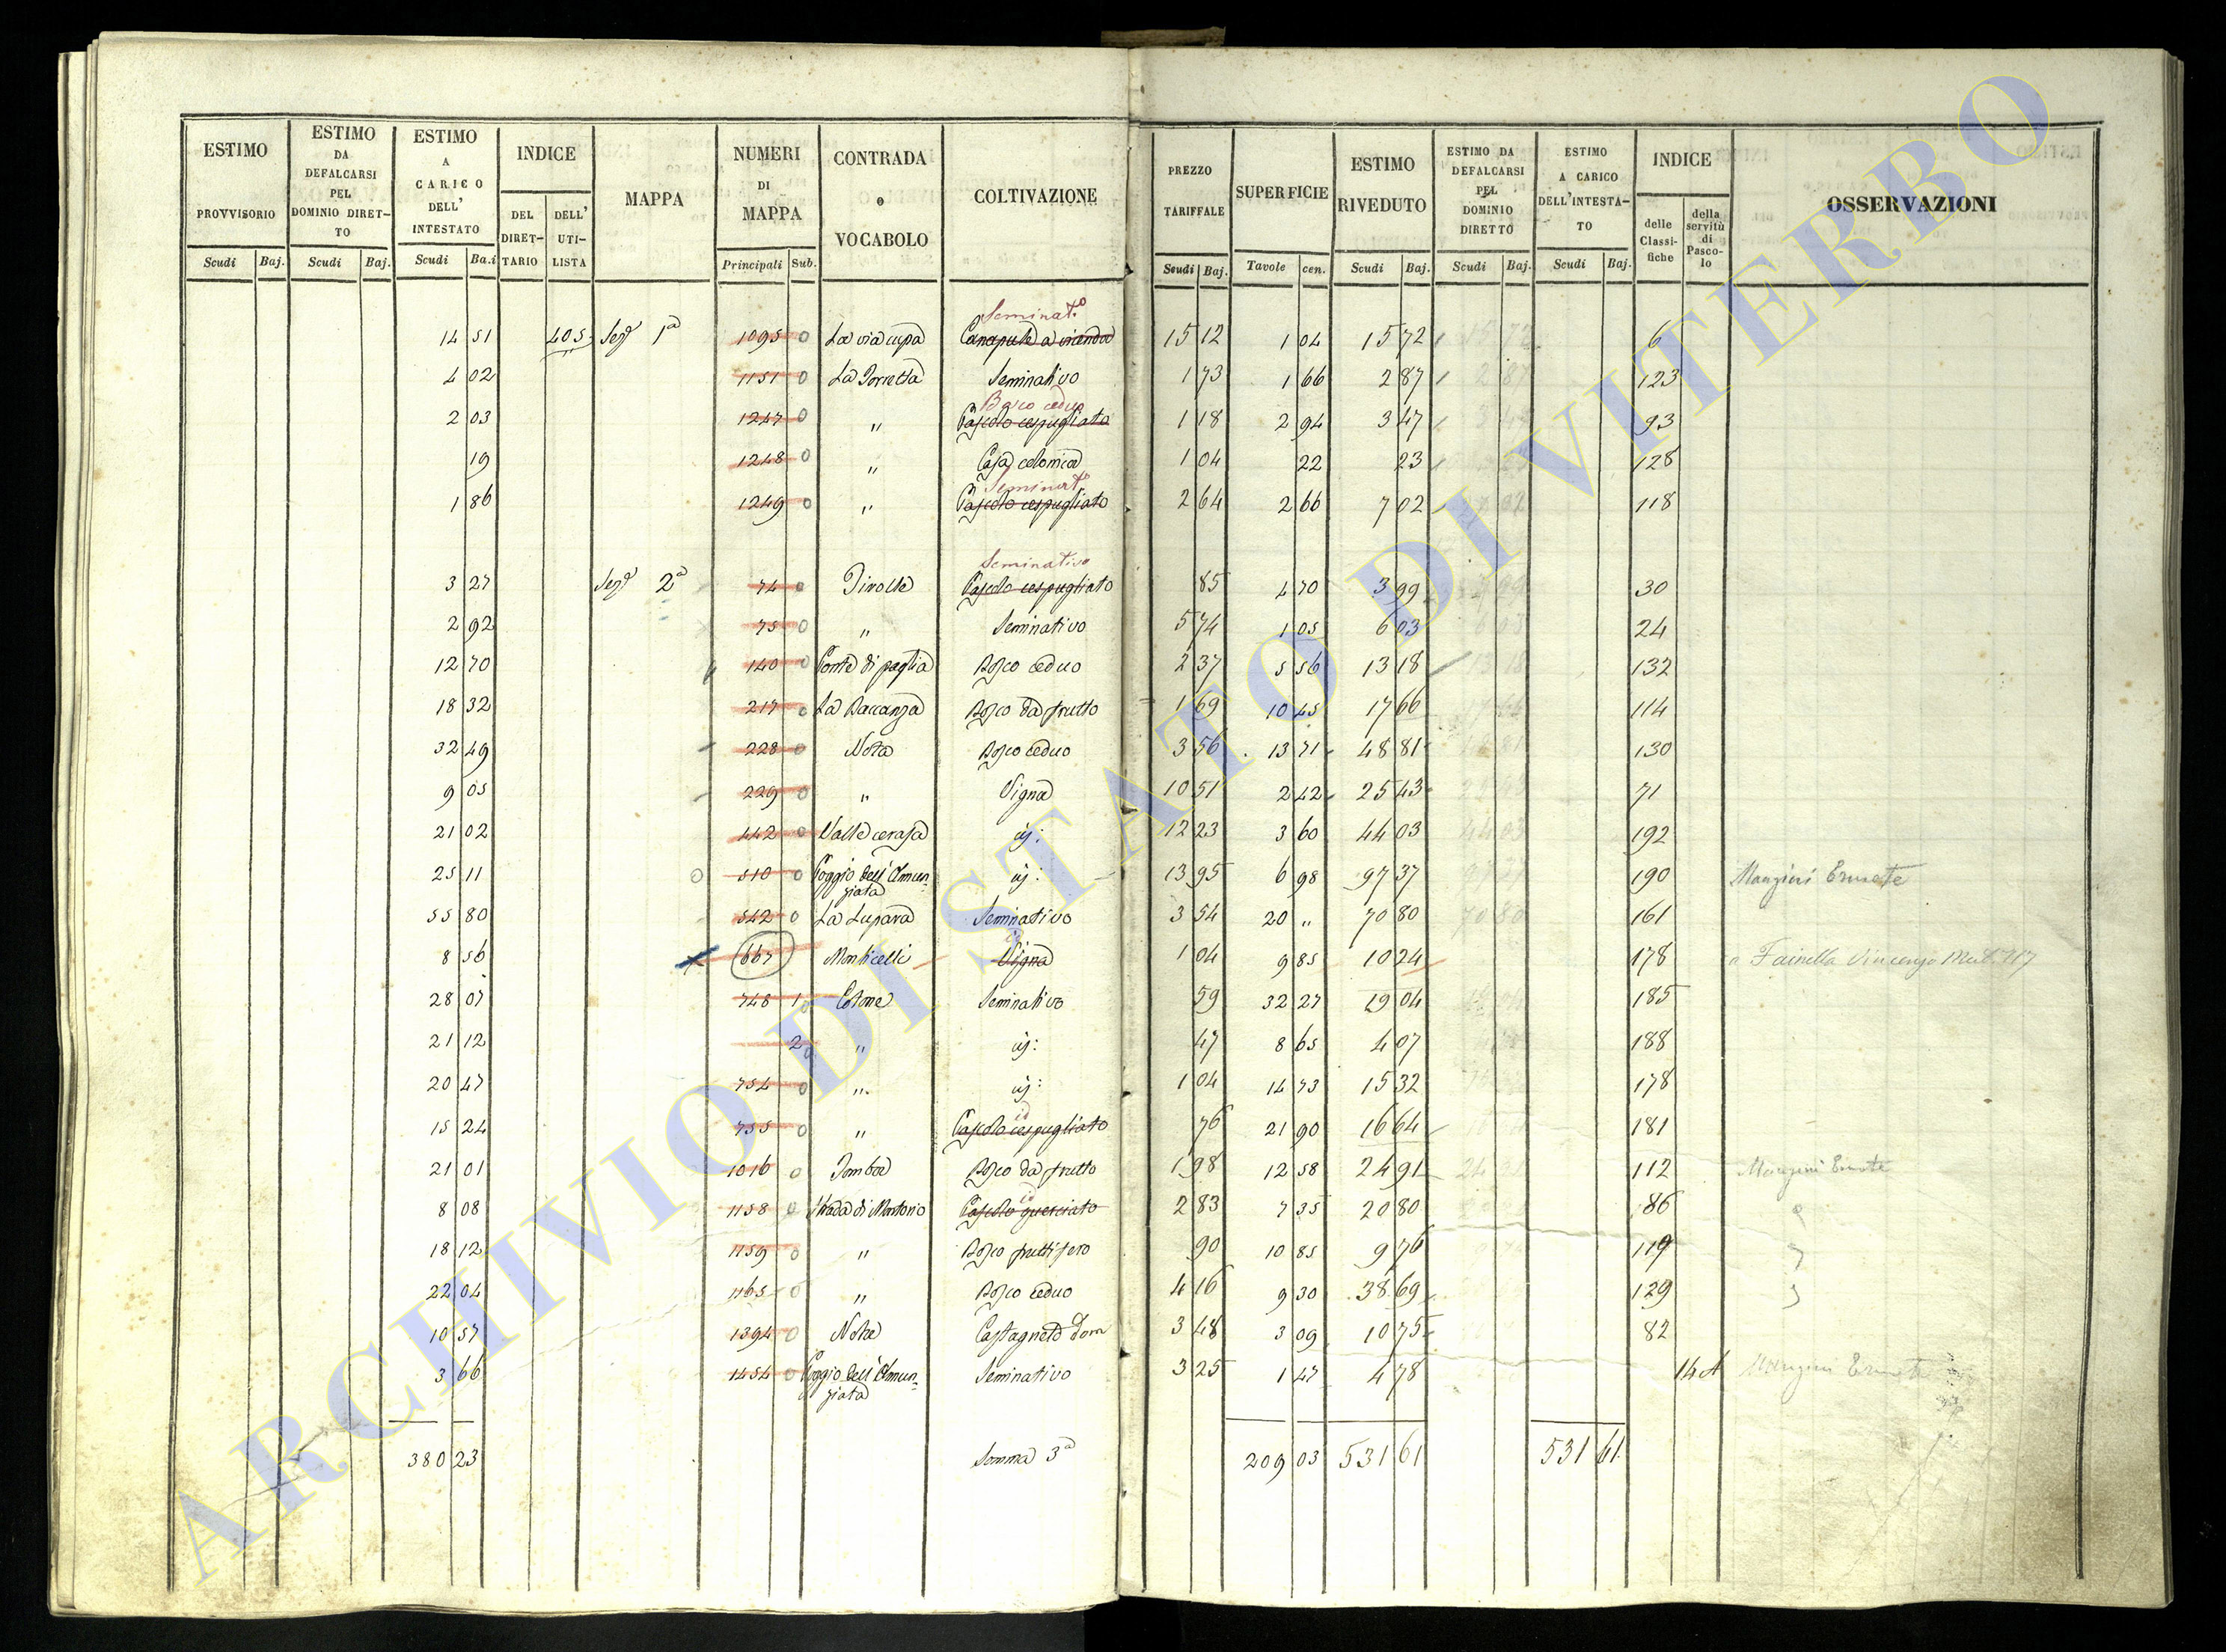 ESTIMO PROVVISORIO
ESTIMO DA DEFALCARSI PEL DOMINIO DIRET- TO
ESTIMO A CARICO DELL' INTESTATO
INDICE
DEL DIRET- TARIO
DELL' UTI- LISTA
MAPPA
NUMERI DI MAPPA
CONTRADA o VOCABOLO
COLTIVAZIONE
PREZZO TARIFFALE
SUPERFICIE
ESTIMO RIVEDUTO
ESTIMO DA DEFALCARSI PEL DOMINIO DIRETTO
ESTIMO A CARICO DELL'INTESTA- TO
INDICE
delle Classi- fiche
della servitù di Pasco- lo
OSSERVAZIONI
Scudi Baj. Scudi Baj. Scudi Ba.i Principali Sub. Scudi Baj. Tavole cen. Scudi Baj. Scudi Baj. Scudi Baj.
Seminatº
14 51 405 Sezª 1ª 1095 0 La via cupa Canapule a vicenda 15 12 1 04 15 72 6
4 02 1151 0 La Torretta Seminativo 1 73 1 66 2 87 123
Bosco ceduo
2 03 1247 0 " Pascolo cespugliato 1 18 2 94 3 47 93
19 1248 0 " Casa colonica 1 04 22 23 128
Seminatº
1 86 1249 0 " Pascolo cespugliato 2 64 2 66 7 02 118
Seminativo
3 27 Sezª 2ª 74 0 Pascolo cespugliato 85 4 70 3 99 30
2 92 75 0 " Seminativo 5 74 1 05 6 03 24
12 70 140 0 Ponte di paglia Bosco ceduo 2 37 5 56 13 18 132
18 32 217 0 Bosco da frutto 1 69 10 45 17 66 114
32 49 228 0 Bosco ceduo 3 56 13 71 48 81 130
9 05 229 0 " Vigna 10 51 2 42 25 43 71
21 02 442 0 Valle cerasa id: 12 23 3 60 44 03 192
25 11 510 0 Poggio dell'Annun- ziata id: 13 95 6 98 97 37 190 Mangini Ernete
55 80 542 0 La Lupara Seminativo 3 54 20 " 70 80 161
8 56 667 Monticelli Vigna 1 04 9 85 10 24 178 Fainella Vincenzo
28 07 748 1 0 Seminativo 59 32 27 19 04 185
21 12 2 0 " id: 47 8 65 4 07 188
20 47 754 0 " id: 1 04 14 73 15 32 178
id
15 24 755 0 " Pascolo cespugliato 76 21 90 16 64 181
21 01 1016 0 Bosco da frutto 1 98 12 58 24 91 112 Mangini Ernete
id
8 08 1158 0 Strada di Montorio Pascolo querciato 2 83 7 35 20 80 86
18 12 1159 0 " Bosco fruttifero 90 10 85 9 76 119
22 04 1165 0 " Bosco ceduo 4 16 9 30 38 69 129
10 57 1394 0 Castagneto Dom 3 48 3 09 10 75 82
3 66 1454 0 Poggio dell'Annun- ziata Seminativo 3 25 1 47 4 78 14 A Mangini Ernete
380 23 Somma 3ª 209 03 531 61 531 61
ARCHIVIO DI STATO DI VITERBO